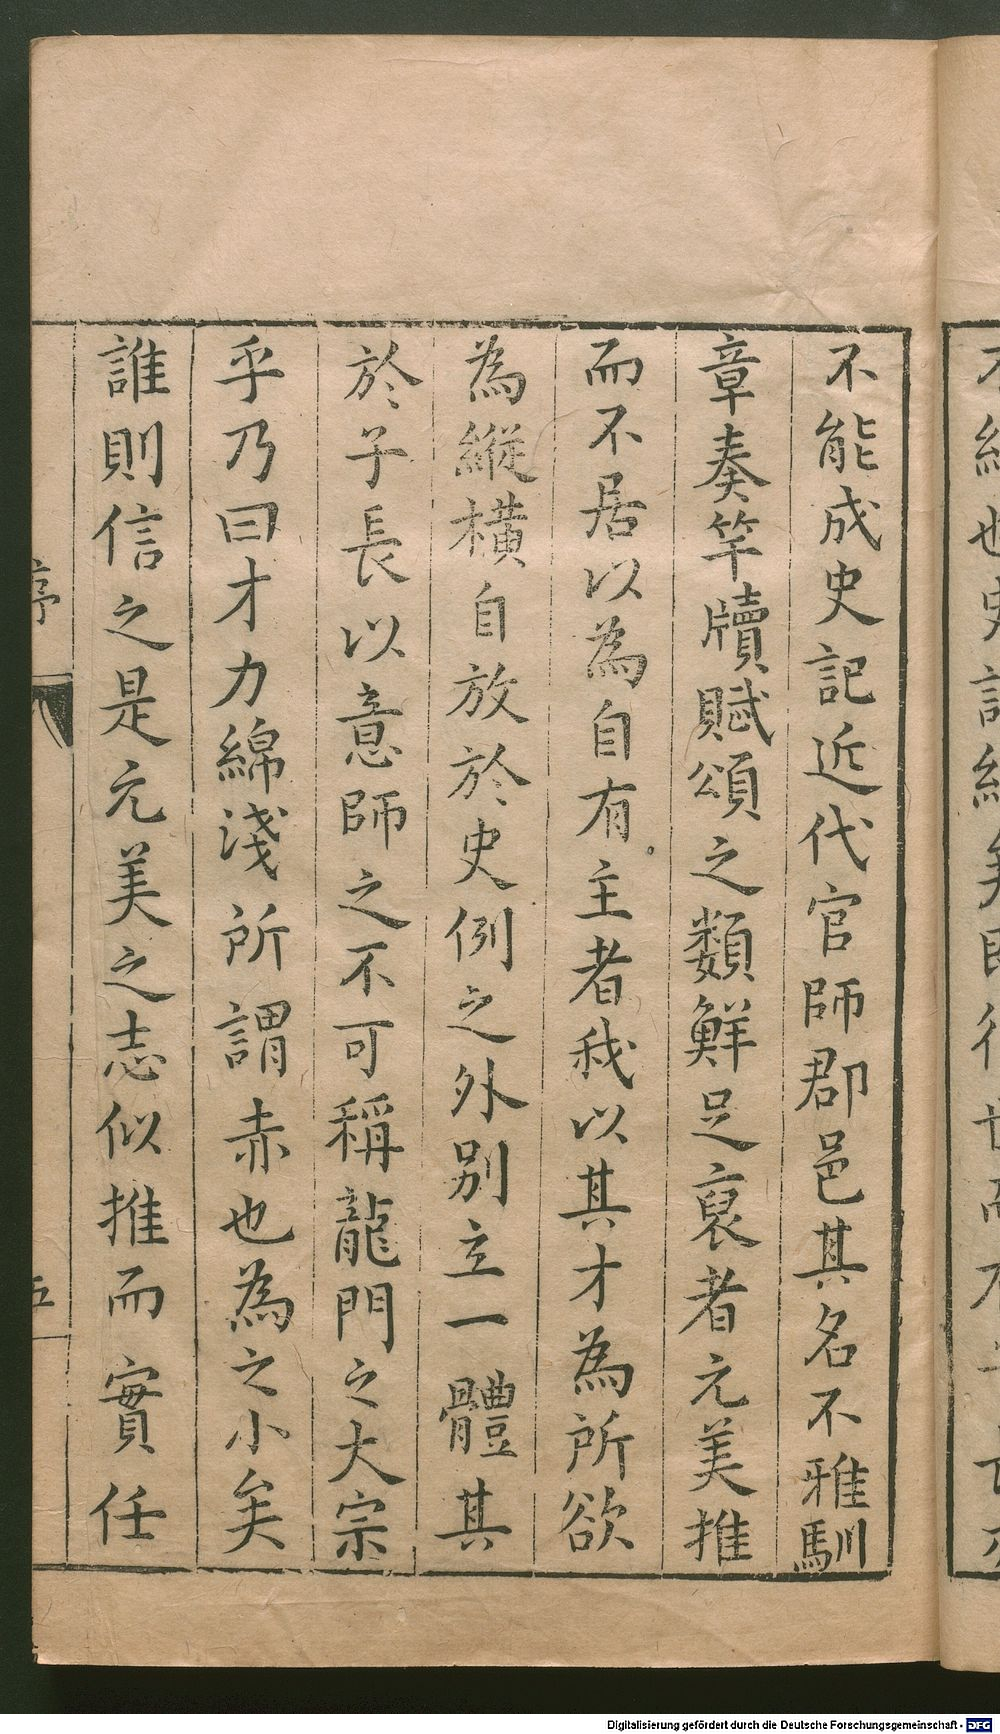 不能成史記近代官師郡邑其名不雅馴
章奏竿牘賦頌之類鮮足裒者元美推
而不居以為自有主者我以其才為所欲
為縱橫自放於史例之外別立一體其
於子長以意師之不可稱龍門之大宗
乎乃曰才力綿淺所謂赤也為之小矣
誰則信之是元美之志似推而實任
序
五
Digitalisierung gefördert durch die Deutsche Forschungsgemeinschaft - DFG